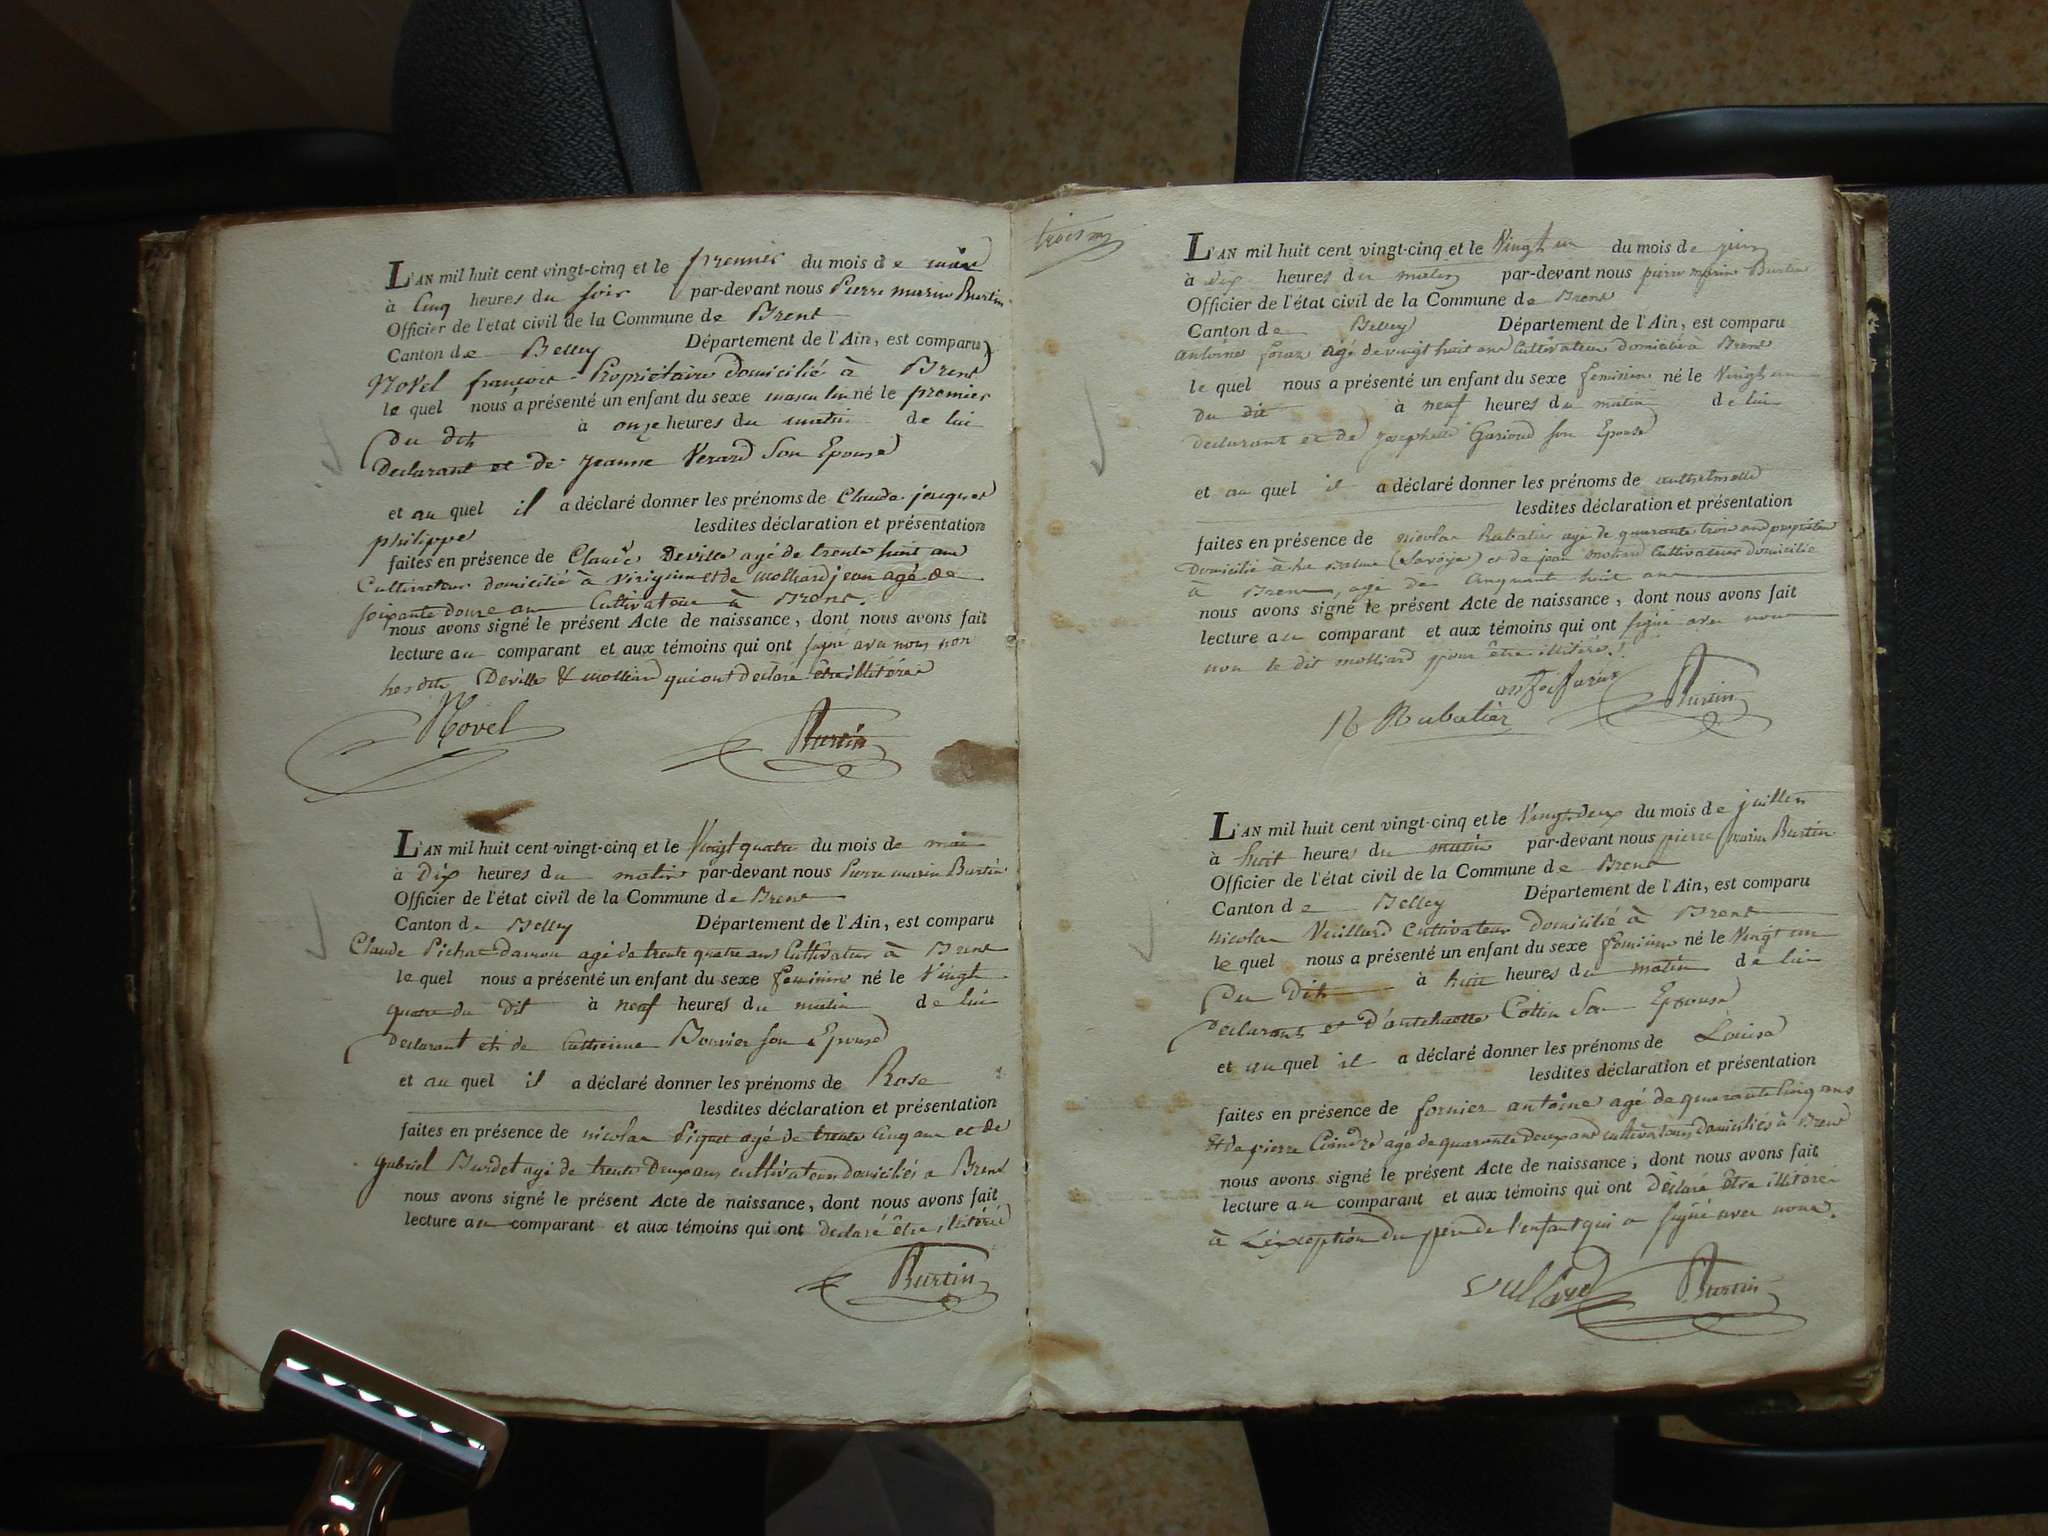 L'AN mil huit cent vingt-cinq et le premier du mois de mai
à cinq heures du soir par-devant nous Pierre marin Burtin
Officier de l'état civil de la Commune de Brens
Canton de Belley Département de l'Ain, est comparu
Novel françois Propriétaire domicilié à Brens
le quel nous a présenté un enfant du sexe masculin né le premier
Du dit à onze heures du matin de lui
Declarant et de jeanne Verard Son Epouse
et au quel il a déclaré donner les prénoms de Claude jacques
philippe lesdites déclaration et présentation
faites en présence de Claude Deville agé de trente huit ans
Cultivateur domicilié à Virignin et de Molliard jean agé de
soixante douze ans Cultivateur à Brens.
nous avons signé le présent Acte de naissance, dont nous avons fait
lecture au comparant et aux témoins qui ont signé avec nous non
les dits Deville & Molliard qui ont declaré être illitéré
Novel Burtin
L'AN mil huit cent vingt-cinq et le Vingt quatre du mois de mai
à Dix heures du matin par-devant nous Pierre marin Burtin
Officier de l'état civil de la Commune de Brens
Canton de Belley Département de l'Ain, est comparu
Claude Pichat damon agé de trente quatre ans Cultivateur à Brens
le quel nous a présenté un enfant du sexe feminin né le Vingt
quatre du dit à neuf heures du matin de lui
declarant et de Catherine Bouvier son Epouse
et au quel il a déclaré donner les prénoms de Rose
lesdites déclaration et présentation
faites en présence de nicolas Piquet agé de trente cinq ans et de
gabriel Burdet agé de trente Deux ans cultivateurs domiciliés a Brens
nous avons signé le présent Acte de naissance, dont nous avons fait
lecture au comparant et aux témoins qui ont declaré être illitéré
Burtin
L'AN mil huit cent vingt-cinq et le Vingt un du mois de juin
à dix heures du matin par-devant nous pierre marin Burtin
Officier de l'état civil de la Commune de Brens
Canton de Belley Département de l'Ain, est comparu
antoine agé de vingt huit ans Cultivateur domicilié à Brens
le quel nous a présenté un enfant du sexe feminin né le Vingt un
du dit à neuf heures du matin de lui
declarant et de josephte Garioud son Epouse
et au quel il a déclaré donner les prénoms de anthelmette
lesdites déclaration et présentation
faites en présence de nicolas Rubatier agé de quarante trois ans propriétaire
Domicilié à la Balme (Savoye) et de jean molliard Cultivateur domicilié
à Brens, agé de cinquante huit ans
nous avons signé le présent Acte de naissance, dont nous avons fait
lecture au comparant et aux témoins qui ont signé avec nous
non le dit molliard pour être illitéré.
Rubatier Burtin
L'AN mil huit cent vingt-cinq et le Vingt deux du mois de juillet
à huit heures du matin par-devant nous pierre marin Burtin
Officier de l'état civil de la Commune de Brens
Canton de Belley Département de l'Ain, est comparu
nicolas Vuillard Cultivateur domicilié à Brens
le quel nous a présenté un enfant du sexe feminin né le Vingt un
Du dit à huit heures du matin de lui
declarant et d'antelmette Cottin Son Epouse
et au quel il a déclaré donner les prénoms de Louise
lesdites déclaration et présentation
faites en présence de fornier antoine agé de quarante cinq ans
et de pierre Coindre agé de quarante deux ans cultivateurs domiciliés à Brens
nous avons signé le présent Acte de naissance, dont nous avons fait
lecture au comparant et aux témoins qui ont declaré être illitéré
à L'exception du pere de l'enfant qui a signé avec nous.
Vullard Burtin